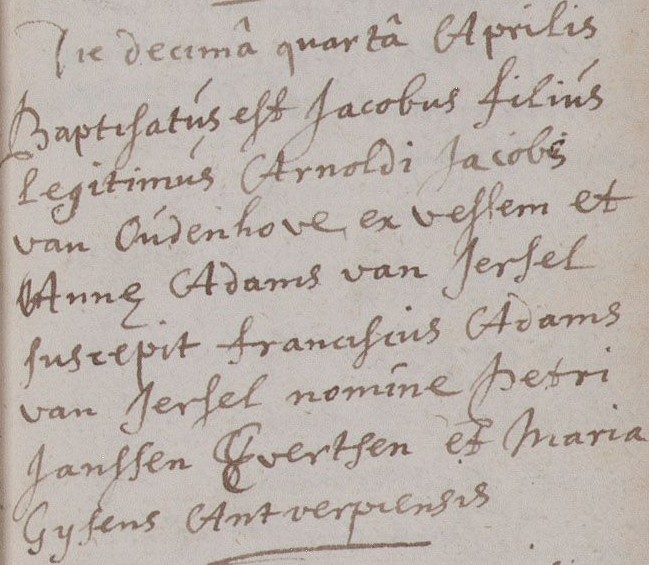 Die decimâ quartâ Aprilis
Baptisatús est Jacobus filiús
legitimús Arnoldi Jacobs
van Oúdenhove ex vessem et
Annę Adams van Jersel
suscepit franciscus Adams
van Jersel nomine Petri
Janssen Evertsen et Maria
Gysens Antverpiensis